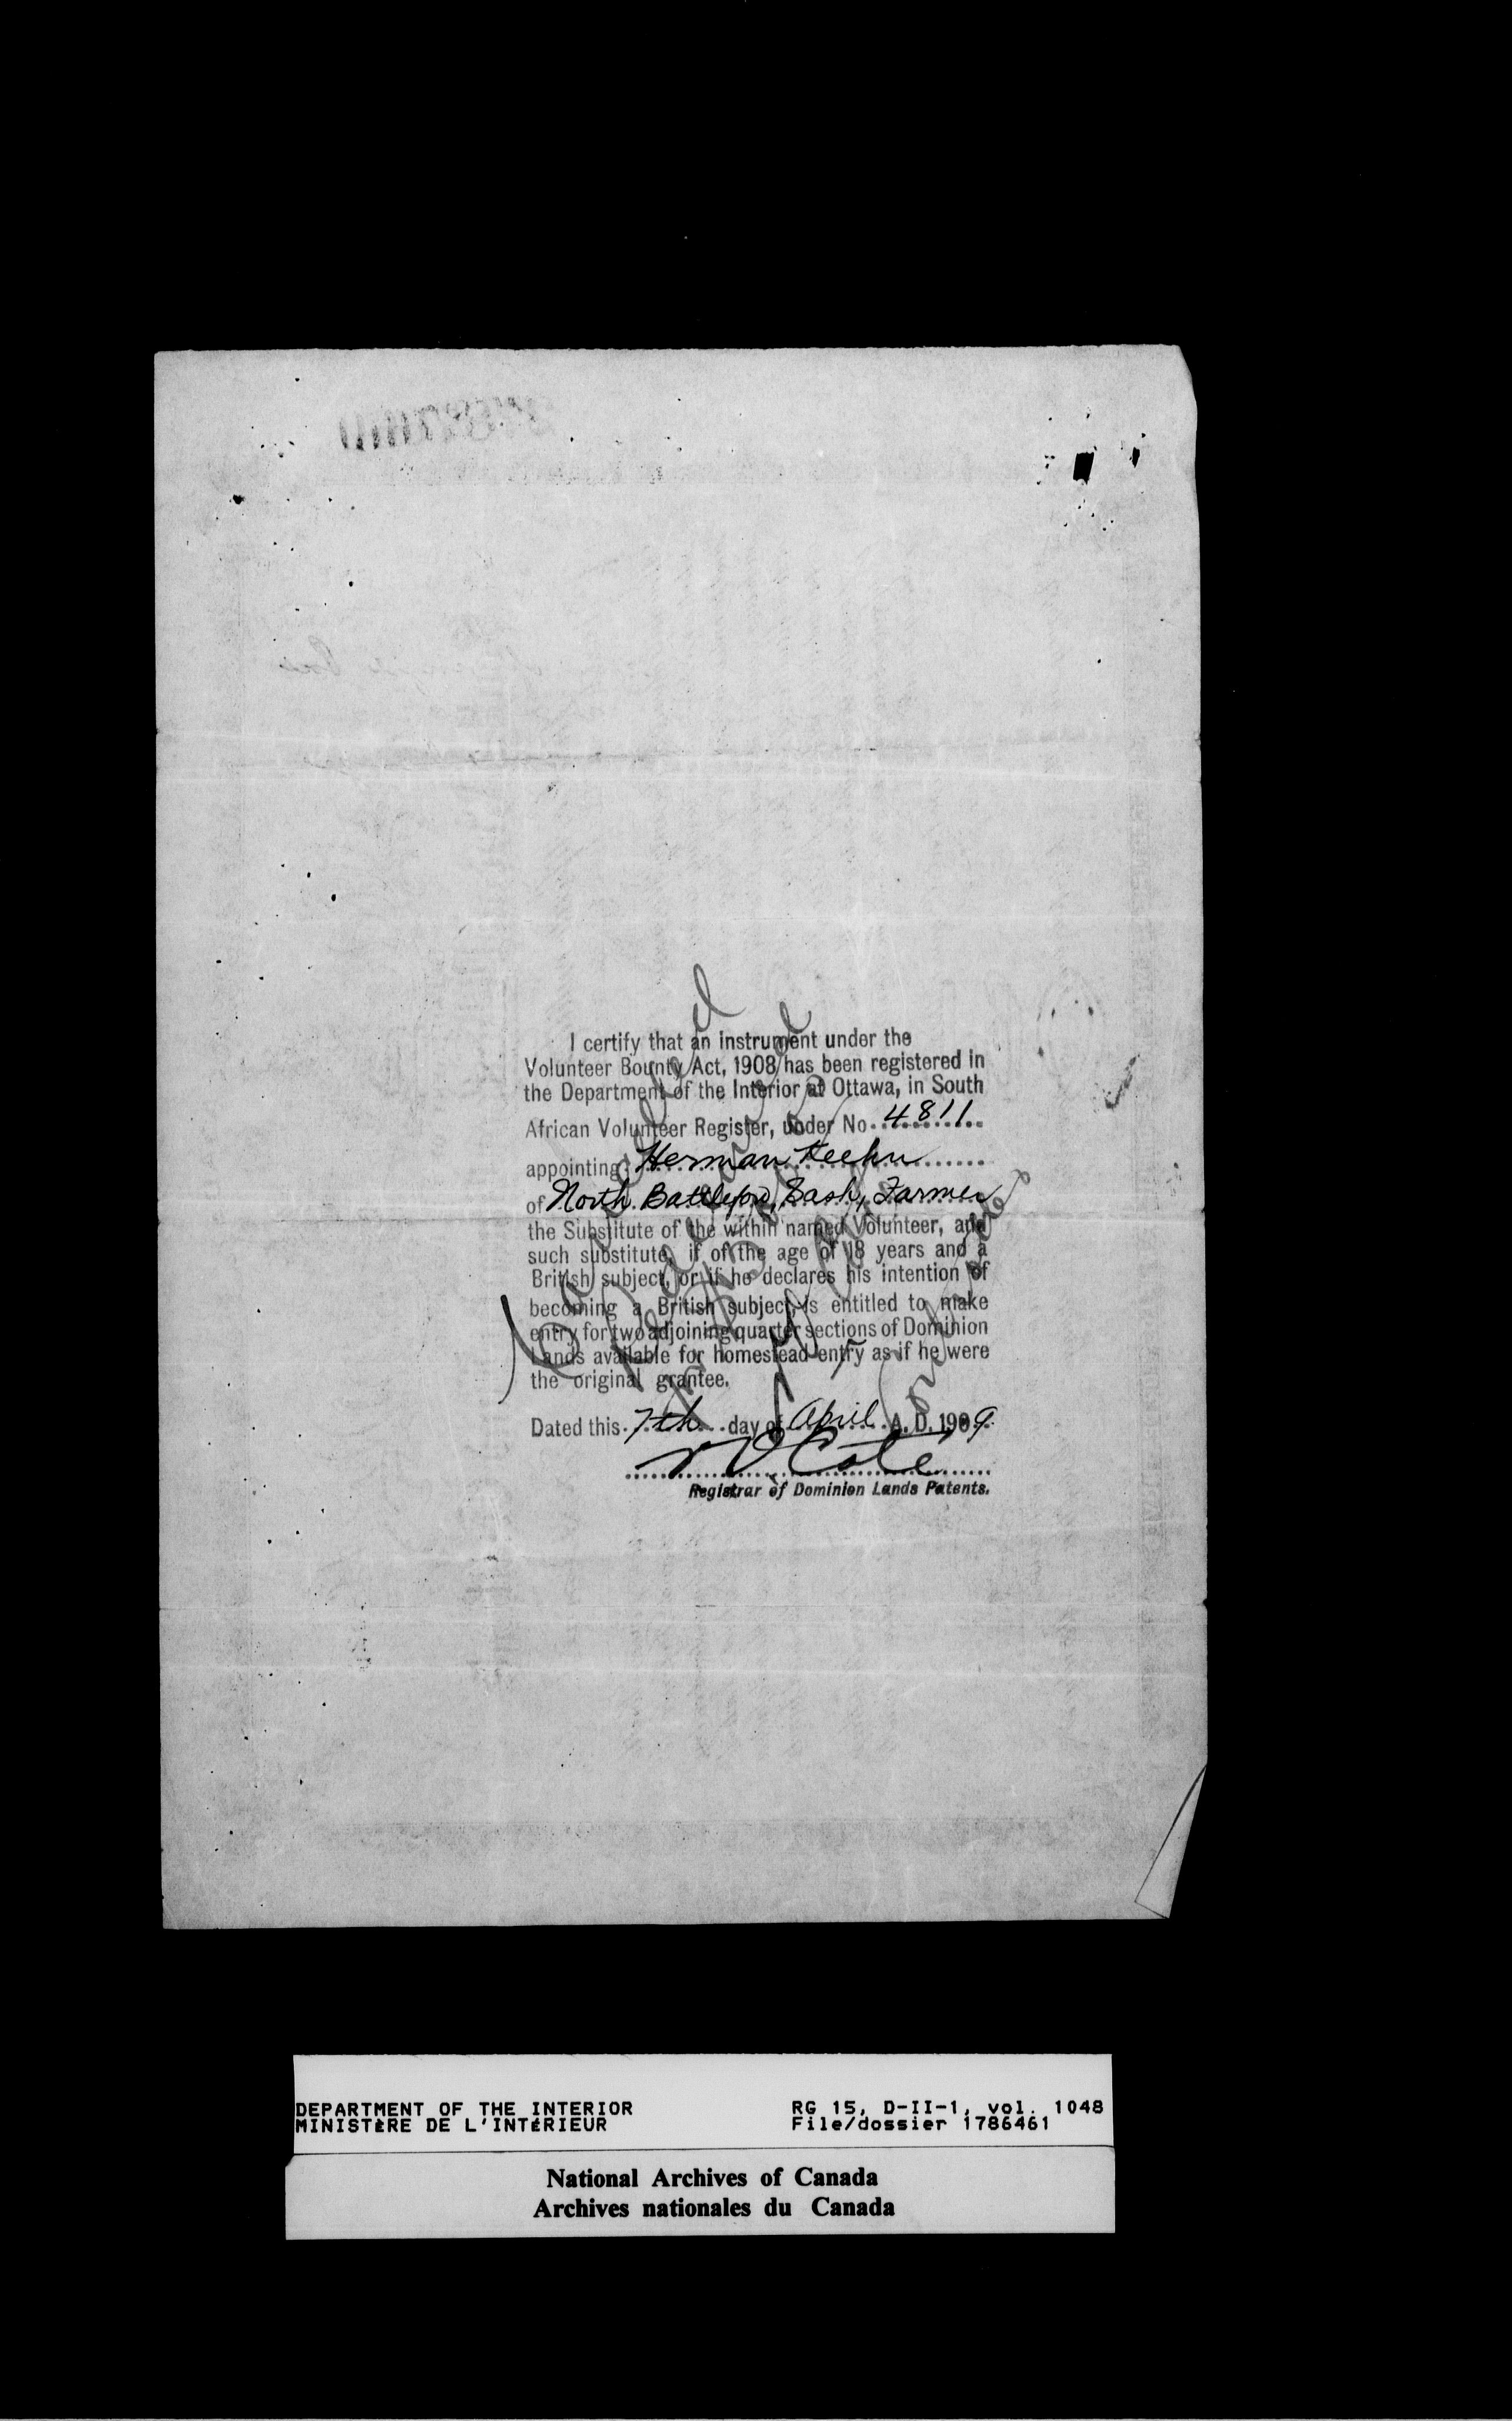 I certify that an instrument under the
Volunteer Bounty Act, 1908 has been registered in
the Department of the Interior at Ottawa, in South
African Volunteer Register, under No. 4811
appointing Herman Keehn
of North Battleford, Sask, Farmer
the Substitute of the within named Volunteer, and
such substitute, if of the age of 18 years and a
British subject, or if he declares his intention of
becoming a British subject, is entitled to make
entry for two adjoining quarter sections of Dominion
Lands available for homestead entry as if he were
the original grantee.
Dated this 7th day of April A.D. 1909.
N O Coté
Registrar of Dominion Lands Patents.
DEPARTMENT OF THE INTERIOR RG 15, D-II-1, vol. 1048
MINISTÈRE DE L'INTÉRIEUR File/dossier 1786461
National Archives of Canada
Archives nationales du Canada